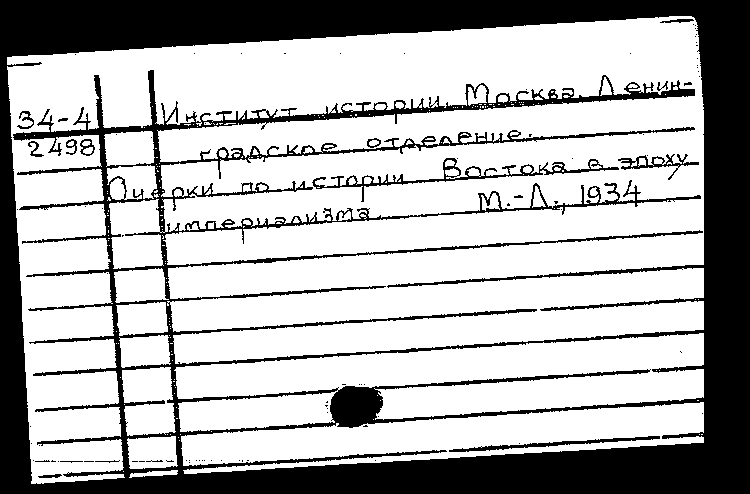 34-4 Институт истории. Москва. Ленин-
2498 градское отделение.
Очерки по истории Востока в эпоху
империализма. М.-Л., 1934